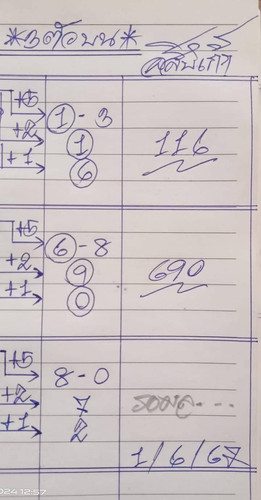 *3ตัวบน*
+5 ①-3
+2 ①
+1 ⑥
116
+5 ⑥-8
+2 ⑨
+1 ⓪
690
+5 8-0
+2 7
+1 2
1/6/67
2024 12:57